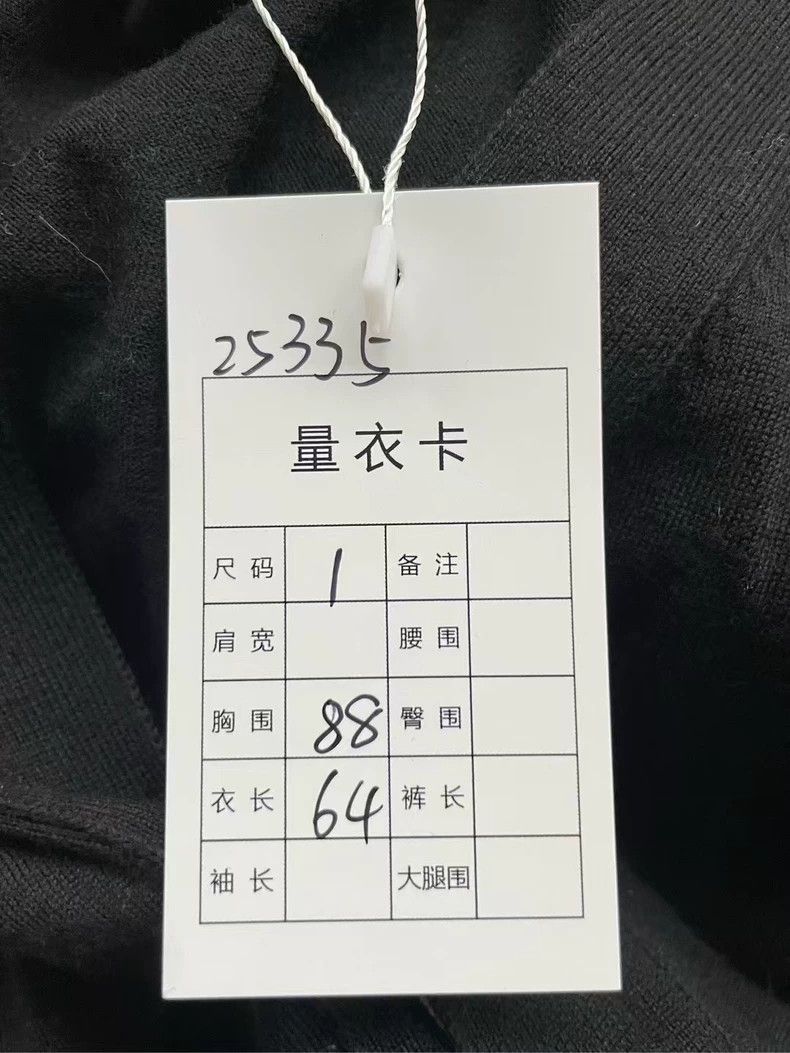 25335
量衣卡
尺码 1 备注
肩宽 腰围
胸围 88 臀围
衣长 64 裤长
袖长 大腿围